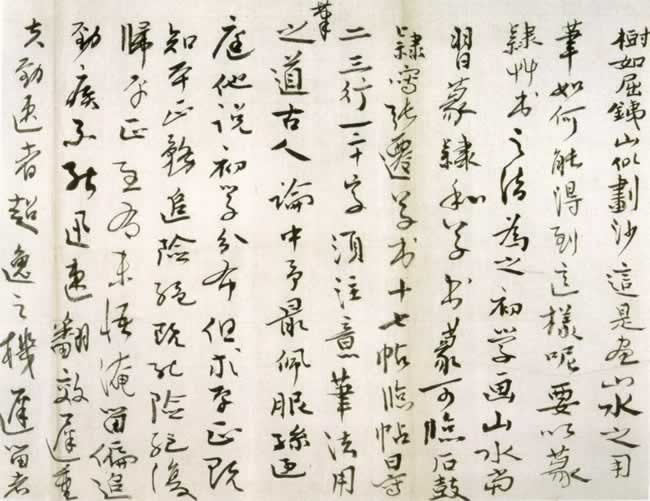 樹如屈鐵山似劃沙這是画山水之用
筆如何能得到這樣呢要以篆
隸艸书之法為之初學画山水當
習篆隸和草书篆可臨石鼓
隸寫張遷草书十七帖臨帖日寫
二三行一二十字須注意筆法用
筆之道古人論中予最佩服孫过
庭他説初学分布但求平正既
知平正務追險絕既能險絕復
歸平正至有未悟淹留偏追
勁疾不能迅速翻效遲重
夫勁速者超逸之機遲留者